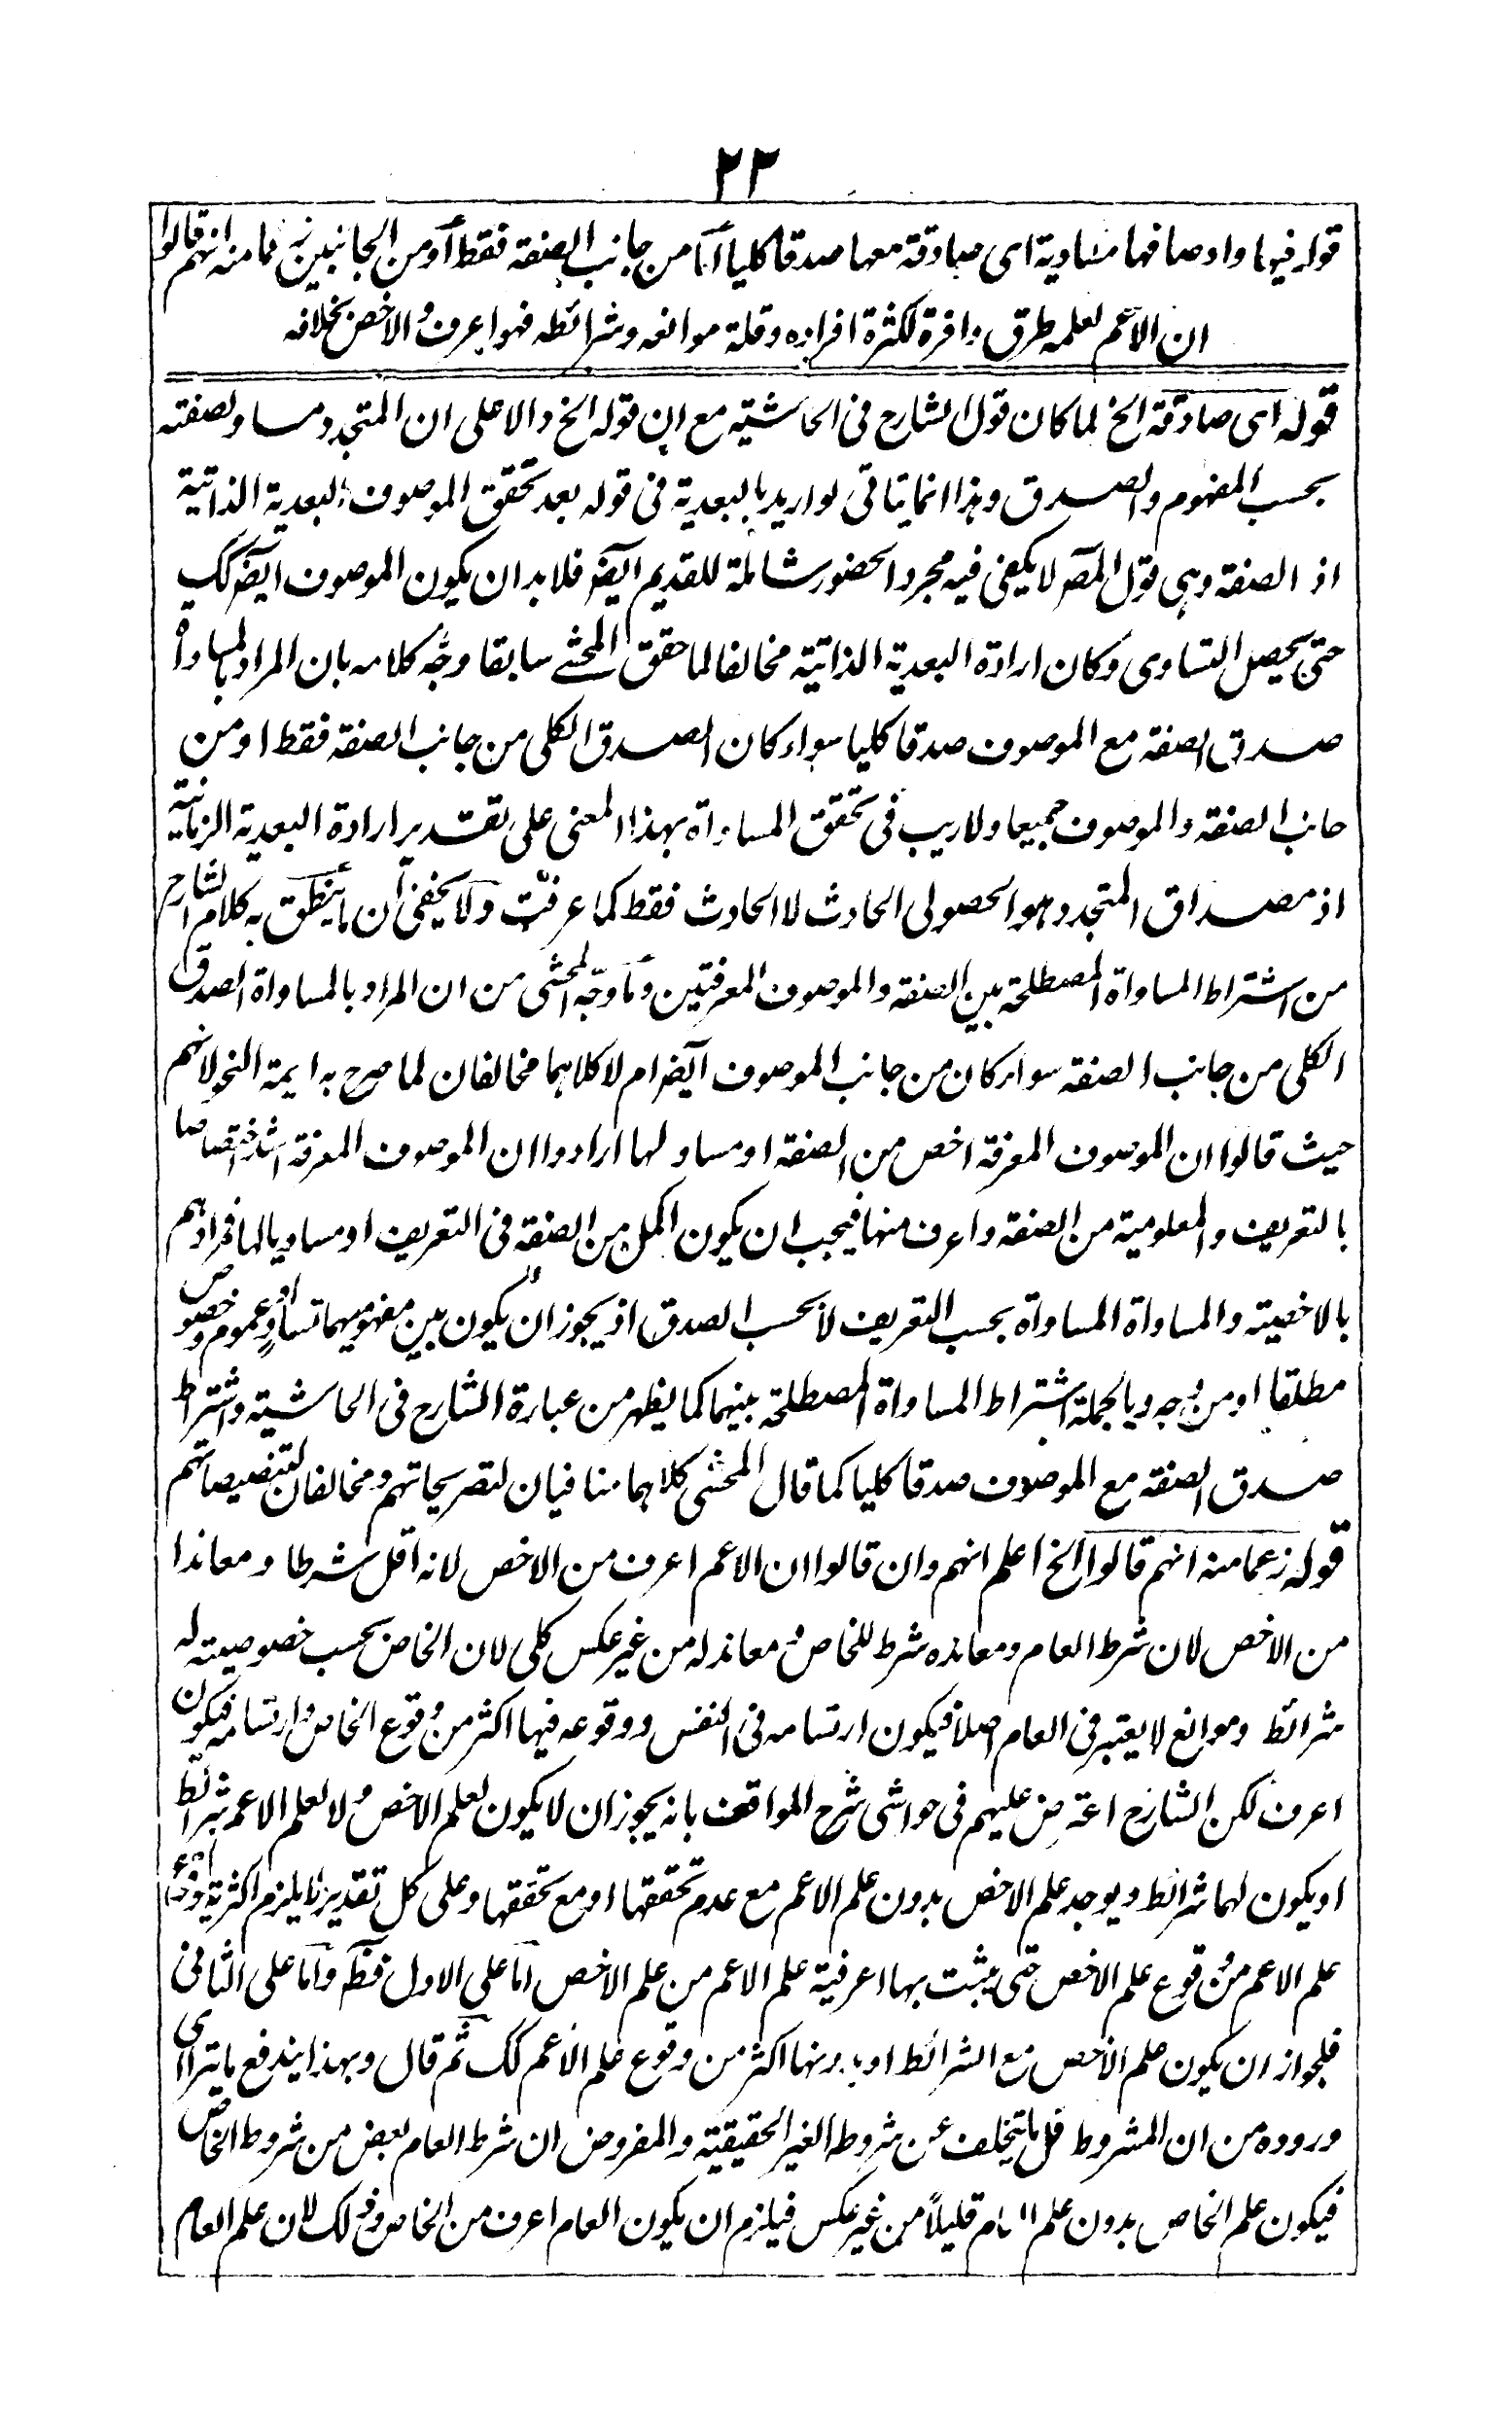 ٢٣
قوله فيها واوصافها مساوية اى صادقة معها صدقا كليا اما من جانب الصفة فقط او من الجانبين زعما منه انهم قالوا
ان الاعم لعلمه طرق وافرة لكثرة افراده وقلة موانعه وشرائطه فهو اعرف والاخص بخلافه
قوله اى صادقة الخ لما كان قول الشارح فى الحاشية مع ان قوله الخ دالا على ان المتجدد مساو لصفته
بحسب المفهوم والصدق وهذا انما يتاتى لو اريد بالبعدية فى قوله بعد تحقق الموصوف البعدية الذاتية
اذ الصفة وهى قول المصر لا يكفى فيه مجرد الحضور شاملة للقديم ايضر فلا بد ان يكون الموصوف ايضر كك
حتى يحصل التساوى وكان ارادة البعدية الذاتية مخالفا لما حقق المحشى سابقا وجّه كلامه بان المراد بالمساواة
صدق الصفة مع الموصوف صدقا كليا سواء كان الصدق الكلى من جانب الصفة فقط او من
جانب الصفة والموصوف جميعا ولا ريب فى تحقق المساواة بهذا المعنى على تقدير ارادة البعدية الزمانية
اذ مصداق المتجدد هو الحصولى الحادث لا الحادث فقط كما عرفت ولا يخفى ان ما ينطق به كلام الشارح
من اشتراط المساواة المصطلحة بين الصفة والموصوف المعرفتين وما وجّه المحشى من ان المراد بالمساواة الصدق
الكلى من جانب الصفة سواء كان من جانب الموصوف ايضر ام لا كلاهما مخالفان لما صرح به ايمة النحو لانهم
حيث قالوا ان الموصوف المعرفة اخص من الصفة او مساو لها ارادوا ان الموصوف المعرفة اشد اختصاصا
بالتعريف والمعلومية من الصفة واعرف منها فيجب ان يكون اكمل من الصفة فى التعريف او مساويا لها فمرادهم
بالاخصية والمساواة المساواة بحسب التعريف لا بحسب الصدق اذ يجوز ان يكون بين مفهوميهما تساوٍ او عموم وخصوص
مطلقا او من وجه وبالجملة اشتراط المساواة المصطلحة بينهما كما يظهر من عبارة الشارح فى الحاشية واشتراط
صدق الصفة مع الموصوف صدقا كليا كما قال المحشى كلاهما منافيان لتصريحاتهم ومخالفان لتنصيصاتهم
قوله زعما منه انهم قالوا الخ اعلم انهم وان قالوا ان الاعم اعرف من الاخص لانه اقل شرطا ومعاندا
من الاخص لان شرط العام ومعانده شرط للخاص ومعاند له من غير عكس كلى لان الخاص بحسب خصوصيته له
شرائط وموانع لا يعتبر فى العام اصلا فيكون ارتسامه فى النفس ووقوعه فيها اكثر من وقوع الخاص وارتسامه فيكون
اعرف لكن الشارح اعترض عليهم فى حواشى شرح المواقف بانه يجوز ان لا يكون لعلم الاخص ولا لعلم الاعم شرائط
او يكون لهما شرائط ويوجد علم الاخص بدون علم الاعم مع عدم تحققها او مع تحققها وعلى كل تقدير لا يلزم اكثرية وقوع
علم الاعم من وقوع علم الاخص حتى يثبت بها اعرفية علم الاعم من علم الاخص اما على الاول فظ واما على الثانى
فلجواز ان يكون علم الاخص مع الشرائط او بدونها اكثر من وقوع علم الاعم كك ثم قال وبهذا يندفع ما يتراآى
وروده من ان المشروط قل ما يتخلف عن شروطه الغير الحقيقية والمفروض ان شرط العام لبعض من شروط الخاص
فيكون علم الخاص بدون علم العام قليلاً من غير عكس فيلزم ان يكون العام اعرف من الخاص وذلك لان علم العام